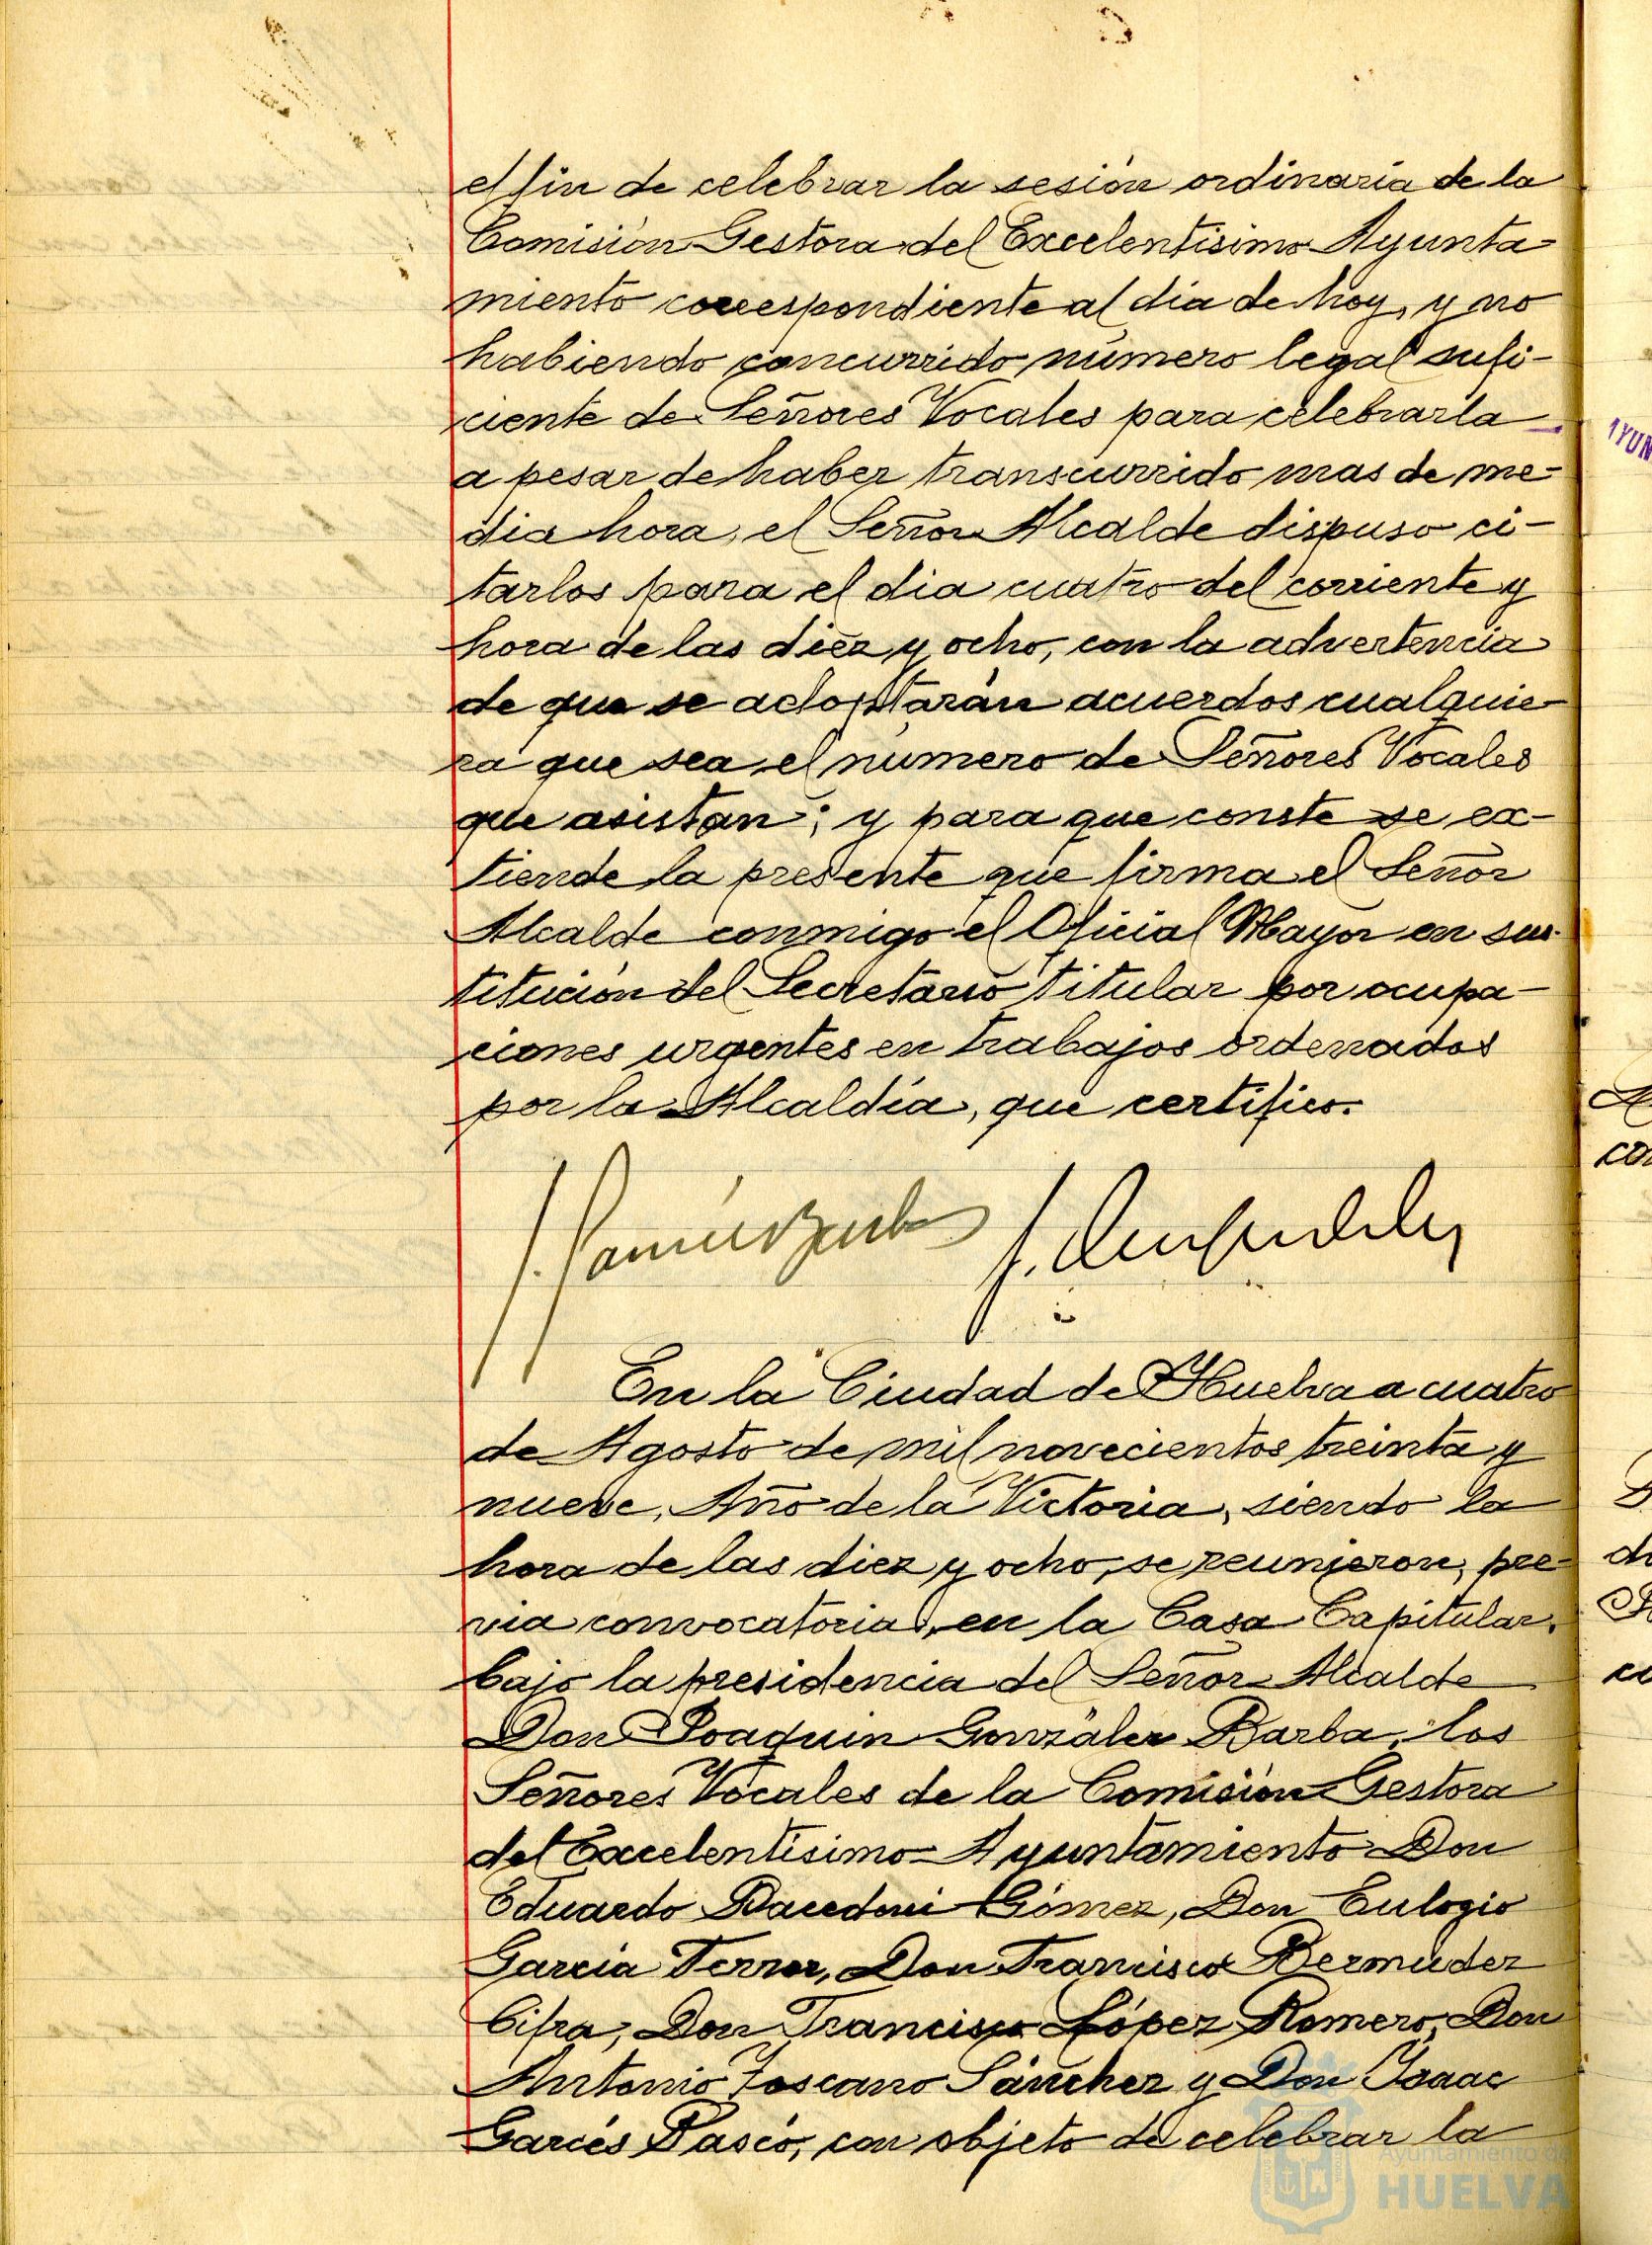 el fin de celebrar la sesión ordinaria de la
Comisión Gestora del Excelentísimo Ayunta-
miento correspondiente al dia de hoy, y no
habiendo concurrido número legal sufi-
ciente de Señores Vocales para celebrarla
a pesar de haber transcurrido mas de me-
dia hora, el Señor Alcalde dispuso ci-
tarlos para el dia cuatro del corriente y
hora de las diez y ocho, con la advertencia
de que se adoptarán acuerdos cualquie-
ra que sea el número de Señores Vocales
que asistan; y para que conste se ex-
tiende la presente que firma el Señor
Alcalde conmigo el Oficial Mayor en sus-
titución del Secretario titular por ocupa-
ciones urgentes en trabajos ordenados
por la Alcaldía, que certifico.
En la Ciudad de Huelva a cuatro
de Agosto de mil novecientos treinta y
nueve, Año de la Victoria, siendo la
hora de las diez y ocho, se reunieron, pre-
via convocatoria, en la Casa Capitular,
bajo la presidencia del Señor Alcalde
Don Joaquin González Barba, los
Señores Vocales de la Comisión Gestora
del Excelentísimo Ayuntamiento Don
Eduardo Gómez, Don Eulogio
García Ferrer, Don Francisco Bermúdez
Cifra, Don Francisco López Romero, Don
Antonio Toscano Sánchez y Don Isaac
Garcés Pascó, con objeto de celebrar la
Ayuntamiento de
HUELVA